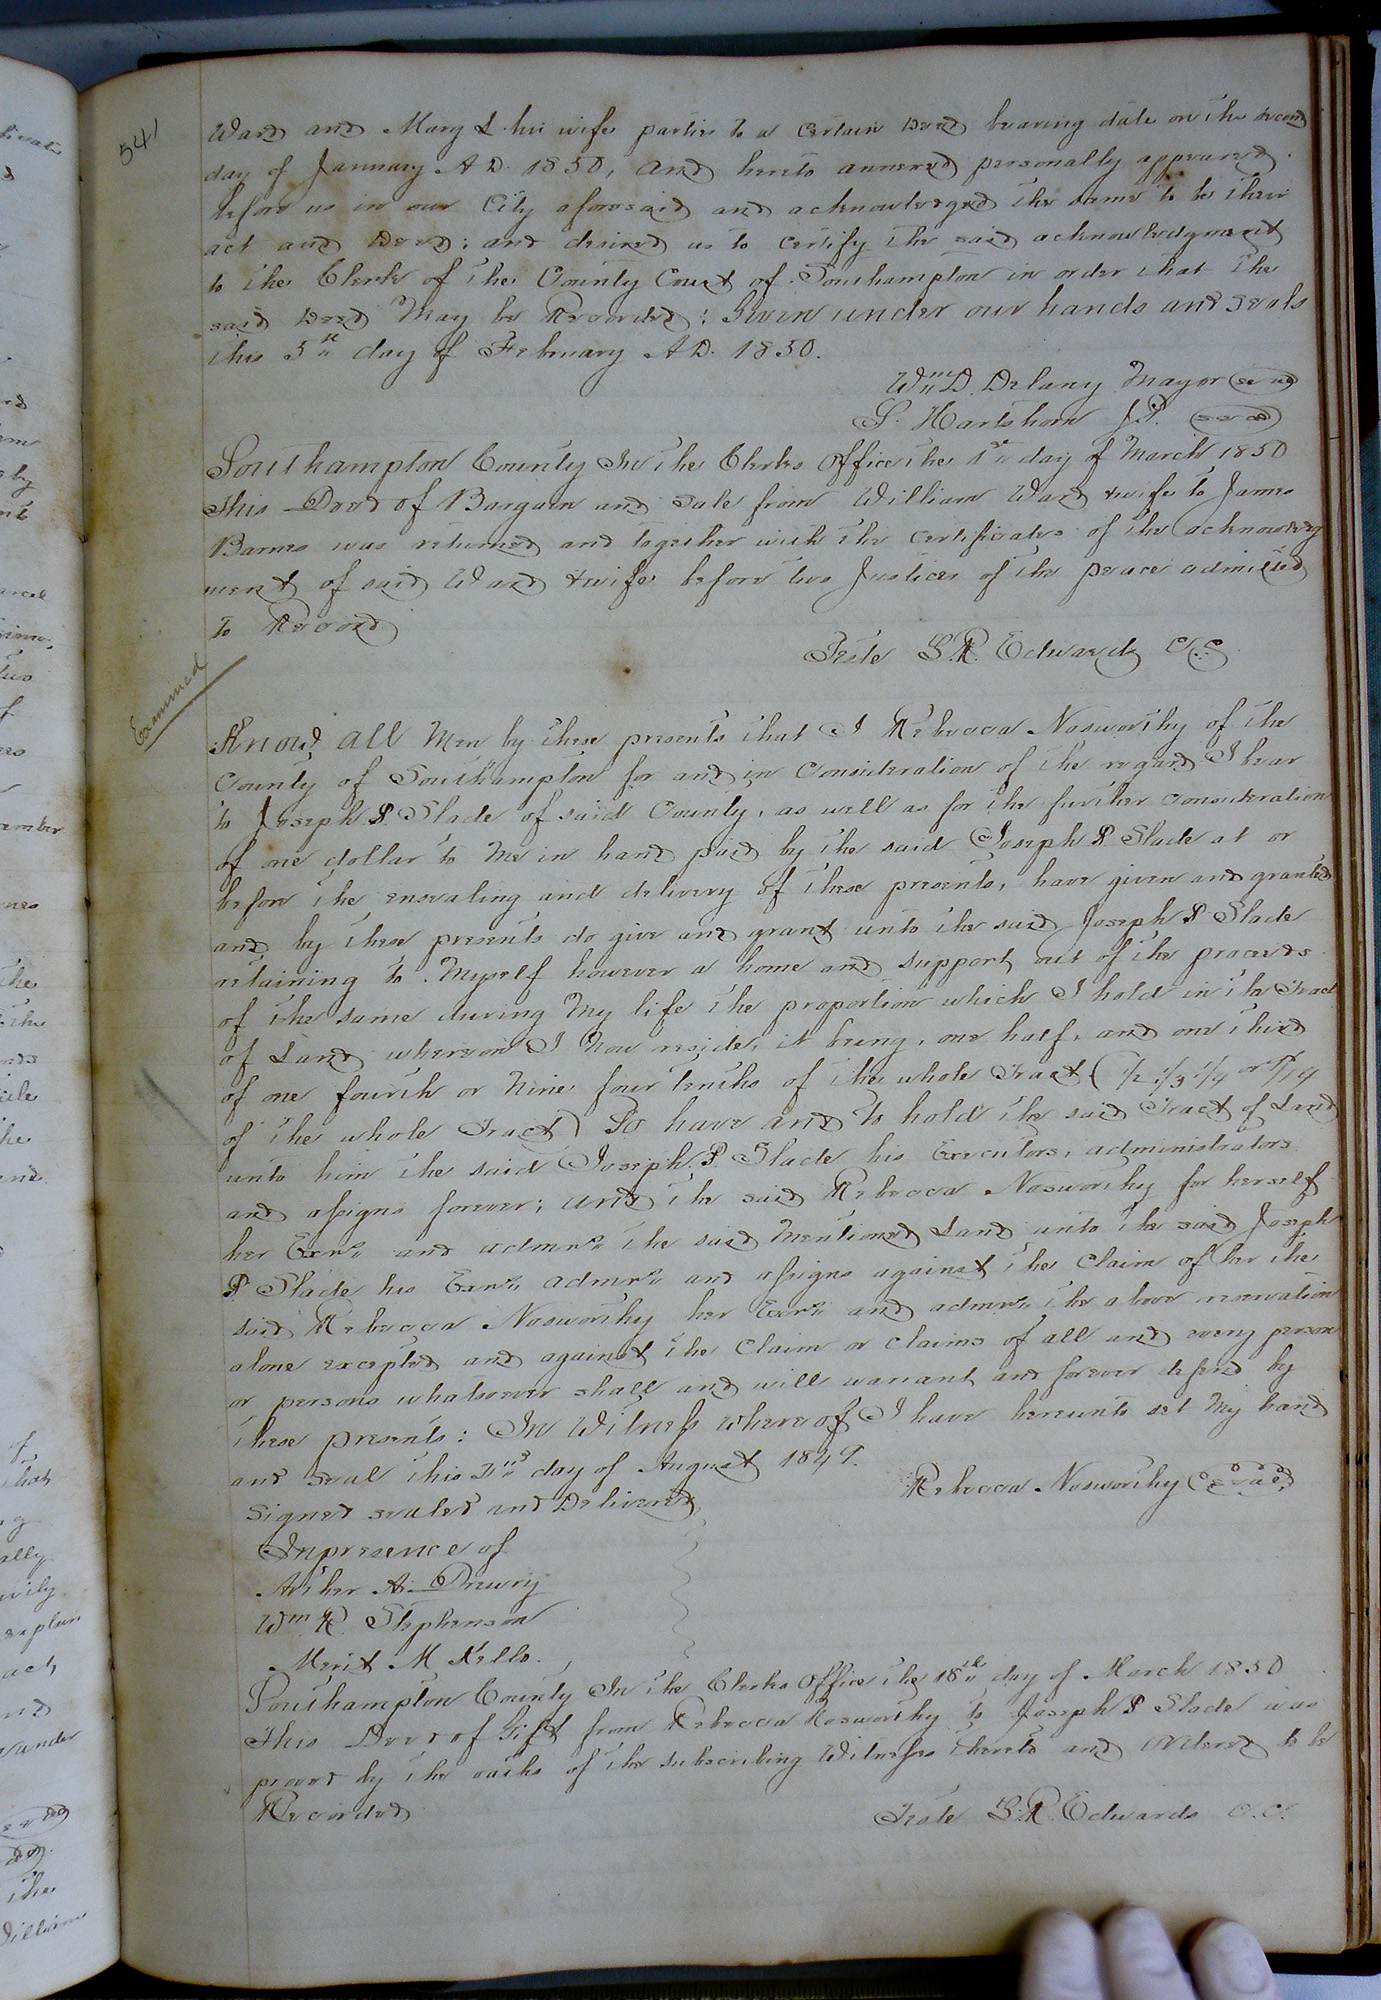 541
Ward and Mary L. his wife parties to a certain Deed bearing date on the second
day of January A D. 1850, and hereto annexed personally appeared
before us in our City aforesaid and acknowledged the same to be their
act and Deed; and desired us to certify the said acknowledgment
to the Clerk of the County Court of Southampton in order that the
said Deed May be Recorded: Given under our hands and seals
this 5th day of February A D. 1850.
Wm D. Delany Mayor (seal)
S. Hartshorn J.P. (seal)
Southampton County In the Clerks Office the 1st day of March 1850
This Deed of Bargain and Sale from William Ward & wife to James
Barnes was returned and together with the certificates of the acknowledg
ment of said Ward & wife before two Justices of the peace admitted
to Record
Teste L. R. Edwards C.C.
Examined
Know all Men by these presents that I Rebecca Nosworthy of the
County of Southampton for and in Consideration of the regard I bear
to Joseph P. Slade of said County, as well as for the further consideration
of one dollar to Me in hand paid by the said Joseph P. Slade at or
before the ensealing and delivery of these presents, have given and granted
and by these presents do give and grant unto the said Joseph P Slade
retaining to Myself however a home and support out of the proceeds
of the same during My life the proportion which I hold in the Tract
of Land whereon I Now reside, it being, one half, and one third
of one fourth or Nine four tenths of the whole Tract (1/2 1/3 1/4 or
of the whole Tract) To have and to hold the said Tract of Land
unto him the said Joseph P. Slade his Executors, administrators
and assigns forever; and the said Rebecca Nosworthy for herself
her Exrs. and admrs. the said Mentioned Land unto the said Joseph
P. Slade his Exrs. admrs. and assigns against the Claim of her the
said Rebecca Nosworthy her Exrs. and admrs. the above reservation
alone excepted and against the Claim or claims of all and every person
or persons whatsoever shall and will warrant and forever defend by
these presents: In Witness whereof I have hereunto set My hand
and seal this day of August 1849.
Rebecca Nosworthy (seal)
Signed sealed and Delivered
In presence of
A. Drewry
Wm R. Stephenson
Merit M Kello.
Southampton County In the Clerks Office the 18th day of March 1850
This Deed of Gift from Rebecca Nosworthy to Joseph P Slade was
proved by the oaths of the subscribing Witnesses thereto and ordered to be
Recorded
Teste L. R. Edwards C.C.